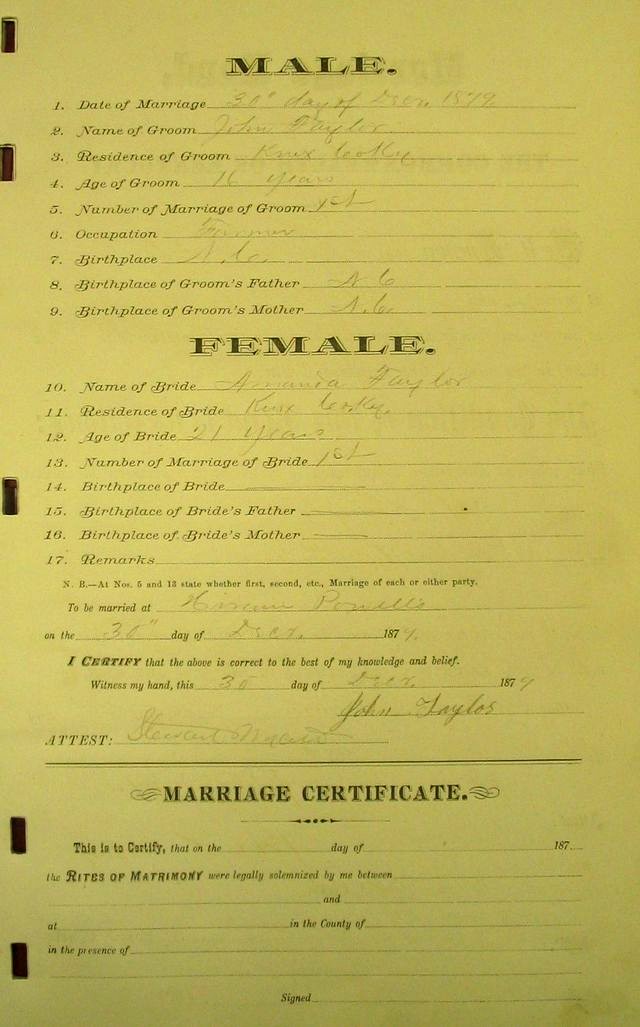 MALE.
1. Date of Marriage 30" day of Decr. 1879
2. Name of Groom John Taylor
3. Residence of Groom Knox Co Ky
4. Age of Groom 16 years
5. Number of Marriage of Groom 1st
6. Occupation Farmer
7. Birthplace N.C.
8. Birthplace of Groom's Father N C
9. Birthplace of Groom's Mother N.C.
FEMALE.
10. Name of Bride Amanda Taylor
11. Residence of Bride Knox Co Ky.
12. Age of Bride 21 Years
13. Number of Marriage of Bride 1st
14. Birthplace of Bride
15. Birthplace of Bride's Father
16. Birthplace of Bride's Mother
17. Remarks
N. B.—At Nos. 5 and 13 state whether first, second, etc., Marriage of each or either party.
To be married at
on the 30" day of Decr. 1879.
I CERTIFY that the above is correct to the best of my knowledge and belief.
Witness my hand, this 30 day of Decr. 1879
John Taylor
ATTEST: Stewart
MARRIAGE CERTIFICATE.
This is to Certify, that on the day of 187
the RITES OF MATRIMONY were legally solemnized by me between
and
at in the County of
in the presence of
Signed